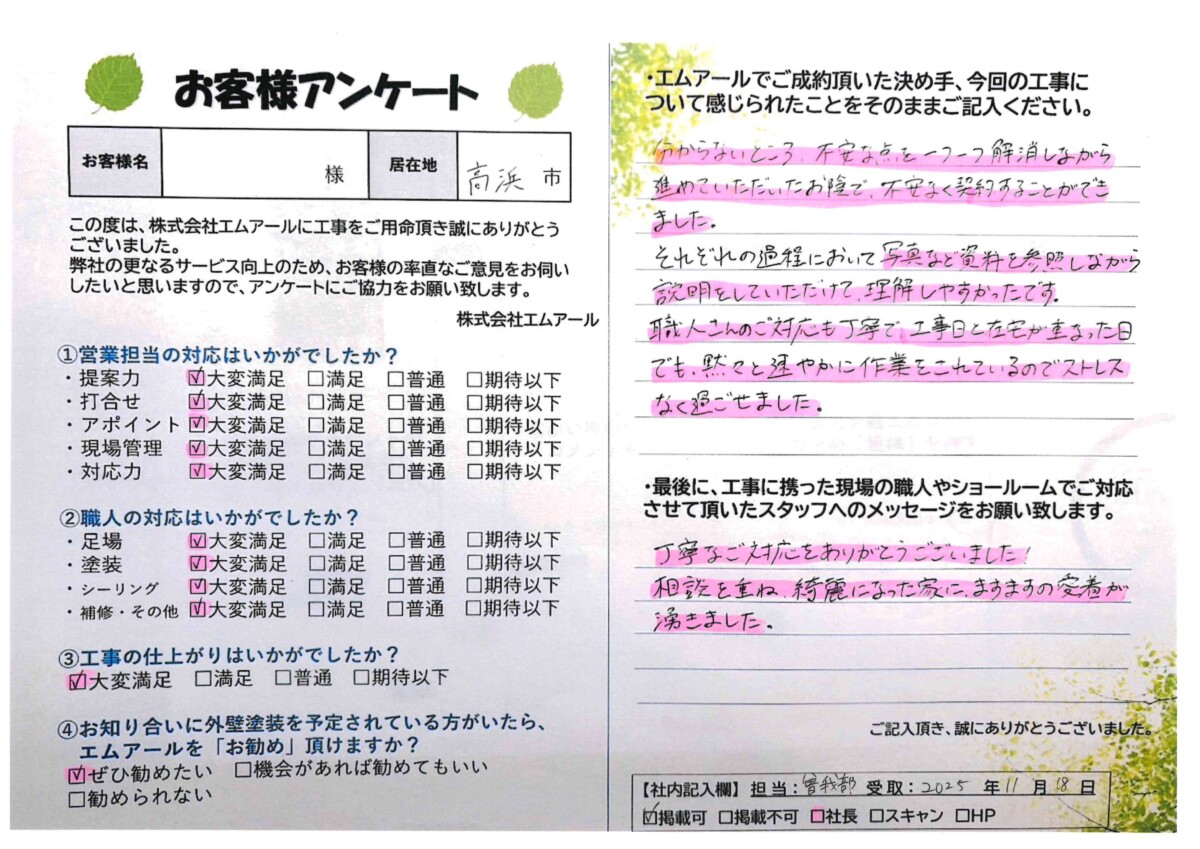 お客様アンケート
お客様名 様 居在地 高浜 市
この度は、株式会社エムアールに工事をご用命頂き誠にありがとう
ございました。
弊社の更なるサービス向上のため、お客様の率直なご意見をお伺い
したいと思いますので、アンケートにご協力をお願い致します。
株式会社エムアール
①営業担当の対応はいかがでしたか？
・提案力 ☑大変満足 □満足 □普通 □期待以下
・打合せ ☑大変満足 □満足 □普通 □期待以下
・アポイント ☑大変満足 □満足 □普通 □期待以下
・現場管理 ☑大変満足 □満足 □普通 □期待以下
・対応力 ☑大変満足 □満足 □普通 □期待以下
②職人の対応はいかがでしたか？
・足場 ☑大変満足 □満足 □普通 □期待以下
・塗装 ☑大変満足 □満足 □普通 □期待以下
・シーリング ☑大変満足 □満足 □普通 □期待以下
・補修・その他 ☑大変満足 □満足 □普通 □期待以下
③工事の仕上がりはいかがでしたか？
☑大変満足 □満足 □普通 □期待以下
④お知り合いに外壁塗装を予定されている方がいたら、
エムアールを「お勧め」頂けますか？
☑ぜひ勧めたい □機会があれば勧めてもいい
□勧められない
・エムアールでご成約頂いた決め手、今回の工事に
ついて感じられたことをそのままご記入ください。
分からないところ、不安な点を一つ一つ解消しながら
進めていただいたお陰で、不安なく契約することができ
ました。
それぞれの過程において写真など資料を参照しながら
説明をしていただけて、理解しやすかったです。
職人さんのご対応も丁寧で、工事日と在宅が重なった日
でも、黙々と速やかに作業をこれているのでストレス
なく過ごせました。
・最後に、工事に携った現場の職人やショールームでご対応
させて頂いたスタッフへのメッセージをお願い致します。
丁寧なご対応をありがとうございました！
相談を重ね、綺麗になった家に、ますますの愛着が
湧きました。
ご記入頂き、誠にありがとうございました。
【社内記入欄】 担当：曽我部 受取：2025 年 11 月 18 日
☑掲載可 □掲載不可 □社長 □スキャン □HP